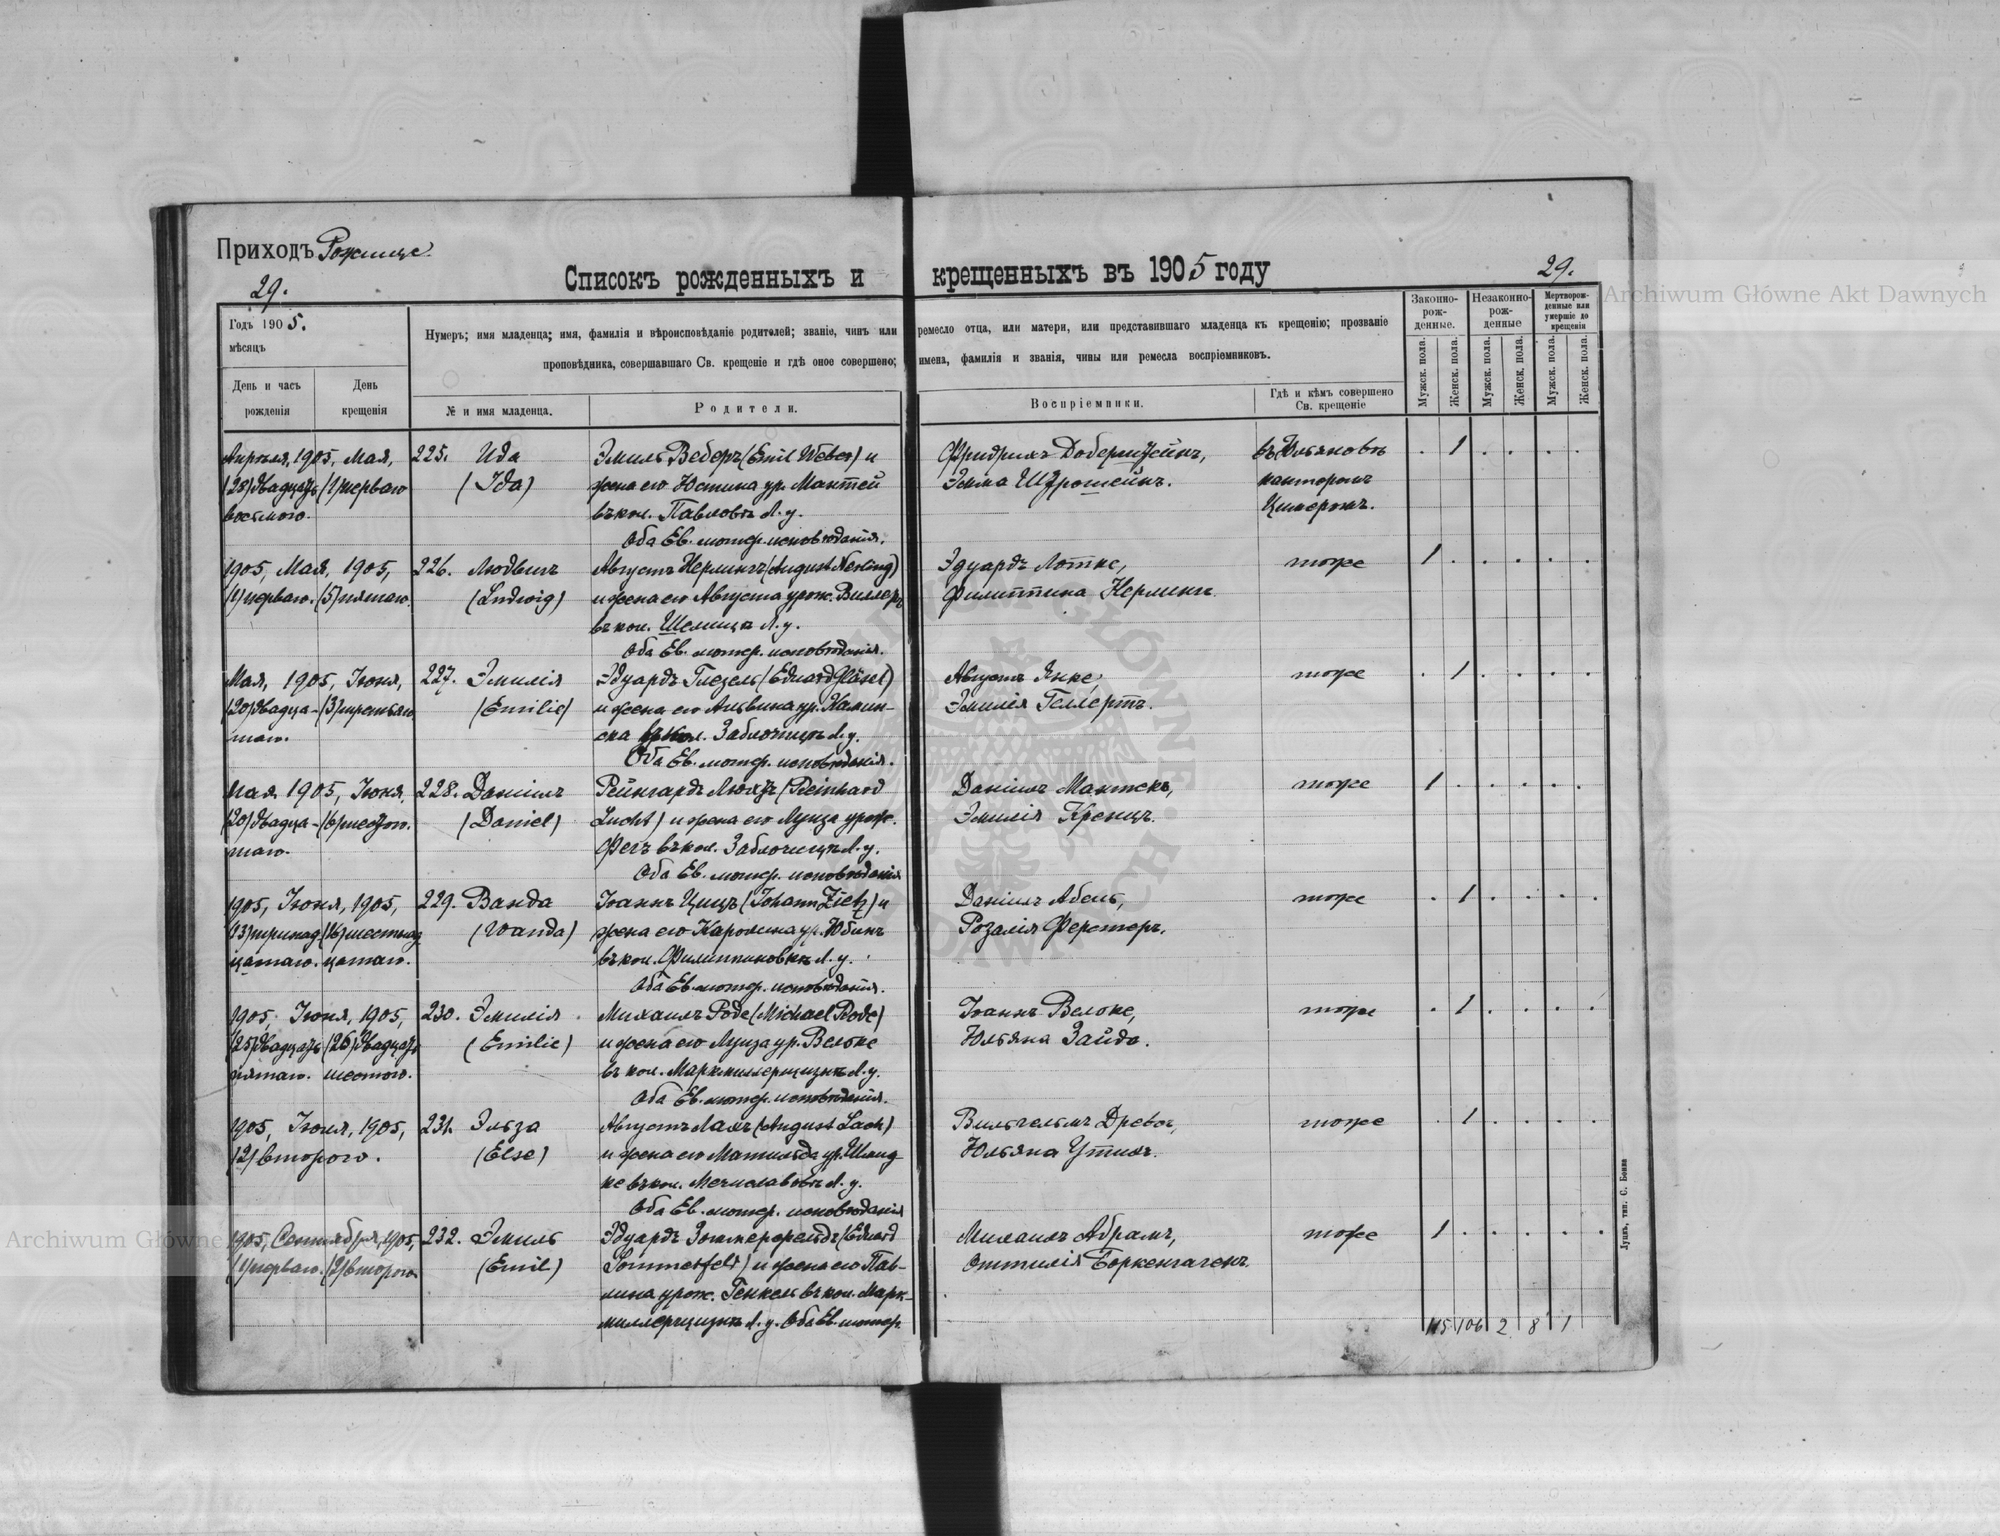 Приходъ Рожище.
29.
Списокъ рожденныхъ и крещенныхъ въ 1905 году
29.
Archiwum Główne Akt Dawnych
Годъ 1905.
мѣсяцъ
День и часъ рожденія
День крещенія
Нумеръ; имя младенца; имя, фамилія и вѣроисповѣданіе родителей; званіе, чинъ или ремесло отца, или матери, или представившаго младенца къ крещенію; прозваніе
проповѣдника, совершавшаго Св. крещеніе и гдѣ оное совершено; имена, фамилія и званія, чины или ремесла воспріемниковъ.
№ и имя младенца.
Родители.
Воспріемники.
Гдѣ и кѣмъ совершено Св. крещеніе
Законно-рож-денные.
Незаконно-рож-денные
Мертворож-денные или умершіе до крещенія
Мужск. пола.
Женск. пола.
Мужск. пола.
Женск. пола.
Мужск. пола.
Женск. пола.
Апрѣля, 1905, Мая, 225. Ида Эмиль Веберъ (Emil Weber) и Фридрихъ въ Ульяновкѣ . 1 . . . .
(28) двадцать (1) перваго (Ida) жена его Юстина ур. Мантей Эмма канторомъ
восьмого. въ кол. Павловкѣ Л. у.
Оба Ев. лютер. исповѣданія.
1905, Мая, 1905, 226. Людвигъ Августъ Нерлингъ (August Nerling) Эдуардъ Лотке, тоже 1 . . . . .
(1) перваго. (5) пятаго. (Ludwig) и жена его Августа урож. Филиппина Нерлингъ.
въ кол. Л. у.
Оба Ев. лютер. исповѣданія.
Мая, 1905, Іюня, 227. Эмилія Эдуардъ Глезель (Eduard Gläsel) Августъ Янке, тоже . 1 . . . .
(20) двадца- (3) третьяго (Emilie) и жена его Альвина ур. Калин- Эмилія Геллертъ.
таго. ска въ кол. Л. у.
Оба Ев. лютер. исповѣданія.
Мая 1905, Іюня, 228. Даніилъ Рейнгардъ Люхтъ (Reinhard Даніилъ тоже 1 . . . . .
(20) двадца- (6) шестого. (Daniel) Lucht) и жена его Луиза урож. Эмилія Кренцъ.
таго. въ кол. Л. у.
Оба Ев. лютер. исповѣданія
1905, Іюня, 1905, 229. Ванда Іоаннъ Цицъ (Johann Zietz) и Даніилъ Абель, тоже . 1 . . . .
(13) тринад (16) шестнад (Wanda) жена его Каролина ур. Розалія Ферстеръ.
цатаго. цатаго. въ кол. Филипповкѣ Л. у.
Оба Ев. лютер. исповѣданія.
1905, Іюня, 1905, 230. Эмилія Михаилъ Роде (Michael Rode) Іоаннъ Вельке, тоже . 1 . . . .
(25) двадцать (26) двадцать (Emilie) и жена его Луиза ур. Вельке Юльяна Зайдо.
пятаго. шестого. въ кол. Л. у.
Оба Ев. лютер. исповѣданія.
1905, Іюля, 1905, 231. Эльза Августъ Лахъ (August Lach) Вильгельмъ Древсъ, тоже . 1 . . . .
(2) второго. (Else) и жена его Матильда ур. Юльяна
ке въ кол. Мечиславовкѣ Л. у.
Оба Ев. лютер. исповѣданія
1905, Сентября, 1905, 232. Эмиль Эдуардъ Зоммерфельдъ (Eduard Михаилъ Абрамъ, тоже 1 . . . . .
(1) перваго. (2) второго (Emil) Sommerfeld) и жена его Пав- Оттилія Боркенгагенъ.
лина урож. Генкель въ кол. Марк-
Л. у. Оба Ев. лютер.
115 106 2 8 1
Луцкъ, тип. С. Бонка
Archiwum Główne